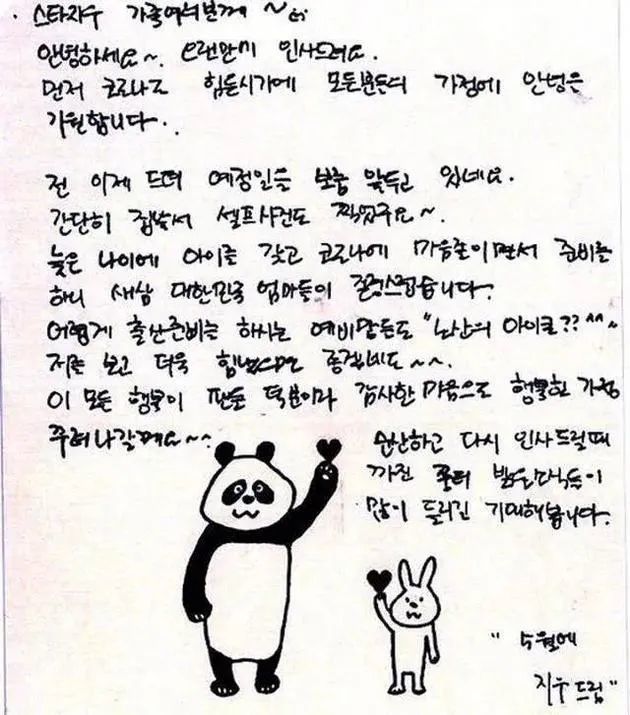 · 스타지우 가족여러분께 ~
안녕하세요~. 오랜만에 인사드려요.
먼저 코로나로 힘든시기에 모든분들의 가정에 안녕을
기원합니다..
전 이제 드뎌 예정일을 보름 앞두고 있네요.
간단히 집에서 셀프사진도 찍었구요~.
늦은 나이에 아이를 갖고 코로나에 마음졸이면서 준비를
하니 새삼 대한민국 엄마들이 존경스럽습니다.
어렵게 출산준비는 하시는 예비맘들도 "노산의 아이콘?? ^^~
저를 보고 더욱 힘냈으면 좋겠네요~~.
이 모든 행복이 팬들 덕분이라 감사한 마음으로 행복한 가정
꾸려나갈께요~~
순산하고 다시 인사드릴때
까진 좀더 밝은소식들이
많이 들리길 기대해봅니다.
" 5월에
지우 드림 "